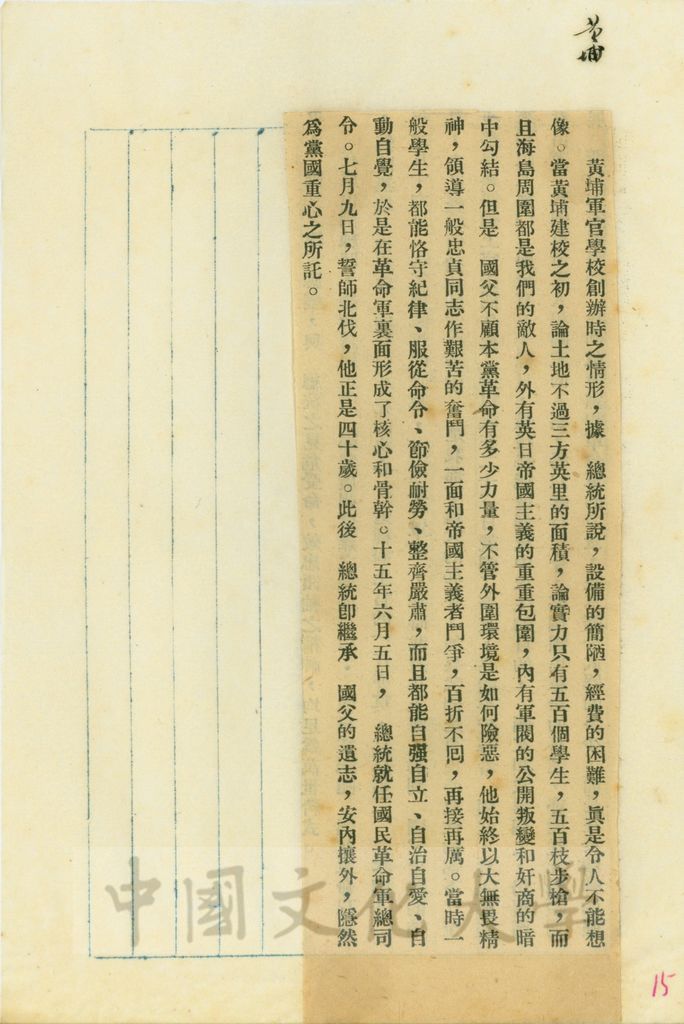 黃埔
黃埔軍官學校創辦時之情形，據　總統所說，設備的簡陋，經費的困難，眞是令人不能想
像。當黃埔建校之初，論土地不過三方英里的面積，論實力只有五百個學生，五百枝步槍，而
且海島周圍都是我們的敵人，外有英日帝國主義的重重包圍，內有軍閥的公開叛變和奸商的暗
中勾結。但是　國父不顧本黨革命有多少力量，不管外圍環境是如何險惡，他始終以大無畏精
神，領導一般忠貞同志作艱苦的奮鬥，一面和帝國主義者鬥爭，百折不囘，再接再厲。當時一
般學生，都能恪守紀律、服從命令、節儉耐勞、整齊嚴肅，而且都能自强自立、自治自愛、自
動自覺，於是在革命軍裏面形成了核心和骨幹。十五年六月五日，　總統就任國民革命軍總司
令。七月九日，誓師北伐，他正是四十歲。此後　總統卽繼承　國父的遺志，安內攘外，隱然
爲黨國重心之所託。
中國文化大學
15